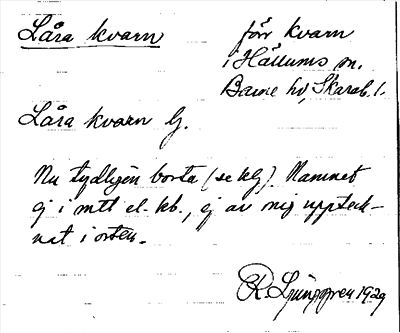 Låra kvarn
förr kvarn
i Hällums sn.
Barne hd, Skarab. l.
Låra kvarn G.
Nu tydligen borta (se klg). Namnet
ej i mtl el. kb., ej av mig uppteck-
nat i orten.
R. Ljunggren 1929